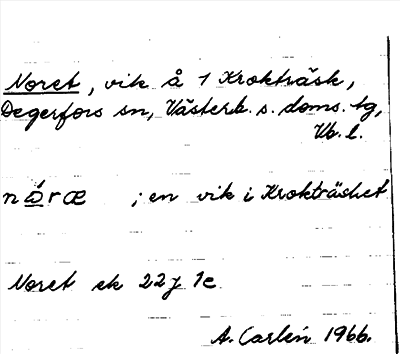 Noret, vik å 1 Krokträsk,
Degerfors sn, Västerb. s. doms. tg,
Vb. l.
nǻræ ; en vik i Krokträsket
Noret ek 22j 1e
A. Carlén 1966.